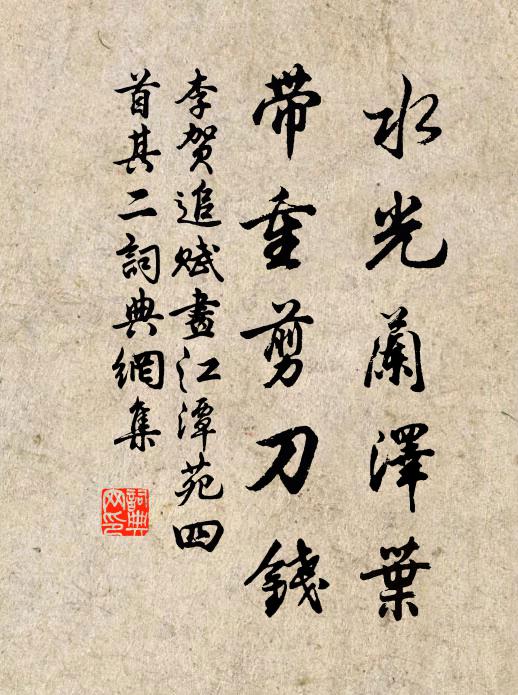 水光蘭澤葉
帶重剪刀錢
李賀追賦畫江潭苑四
首其二詞典網集
詞典
网印